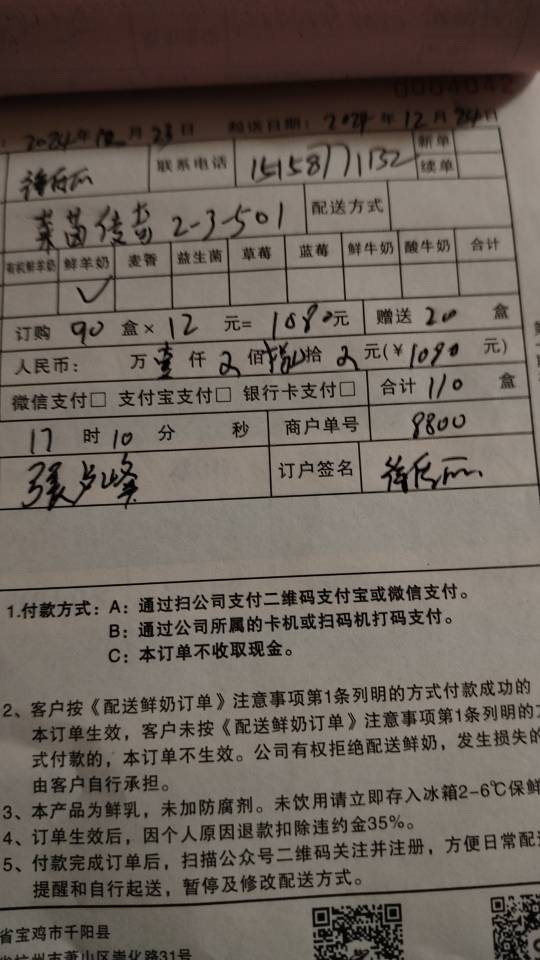 0004042
: 2024年12月23日 起送日期: 2024年12月24日
联系电话 15158771132 新单
续单
2-3-501 配送方式
有机鲜羊奶 鲜羊奶 麦香 益生菌 草莓 蓝莓 鲜牛奶 酸牛奶 合计
✓
订购 90 盒× 12 元= 1080元 赠送 20 盒
人民币: 万壹仟 佰 捌拾 元(¥1080 元)
微信支付□ 支付宝支付□ 银行卡支付□ 合计 110 盒
17 时 10 分 秒 商户单号 8800
张 峰 订户签名
1.付款方式: A: 通过扫公司支付二维码支付宝或微信支付。
B: 通过公司所属的卡机或扫码机打码支付。
C: 本订单不收取现金。
2、客户按《配送鲜奶订单》注意事项第1条列明的方式付款成功的
本订单生效,客户未按《配送鲜奶订单》注意事项第1条列明的方
式付款的,本订单不生效。公司有权拒绝配送鲜奶,发生损失的
由客户自行承担。
3、本产品为鲜乳,未加防腐剂。未饮用请立即存入冰箱2-6℃保鲜
4、订单生效后,因个人原因退款扣除违约金35%。
5、付款完成订单后,扫描公众号二维码关注并注册,方便日常配送
提醒和自行起送,暂停及修改配送方式。
省宝鸡市千阳县
省杭州市萧山区崇化路31号